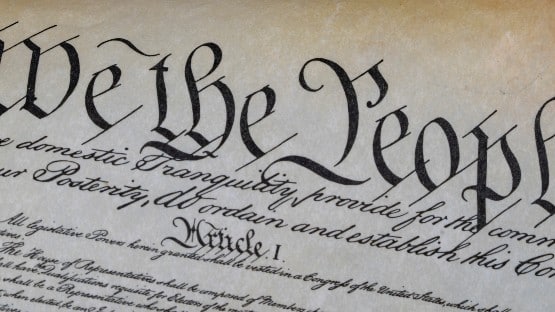 We the Peopl
e domestic Tranquility, provide for the comm
ur Posterity, do ordain and establish this Co
Article. I.
All legislative Powers herein granted shall be vested in a Congress of the United States, which shall
The House of Representatives shall be composed of Members
Qualifications requisite for Electors of the most
be a Representative who shall
when elected, be an